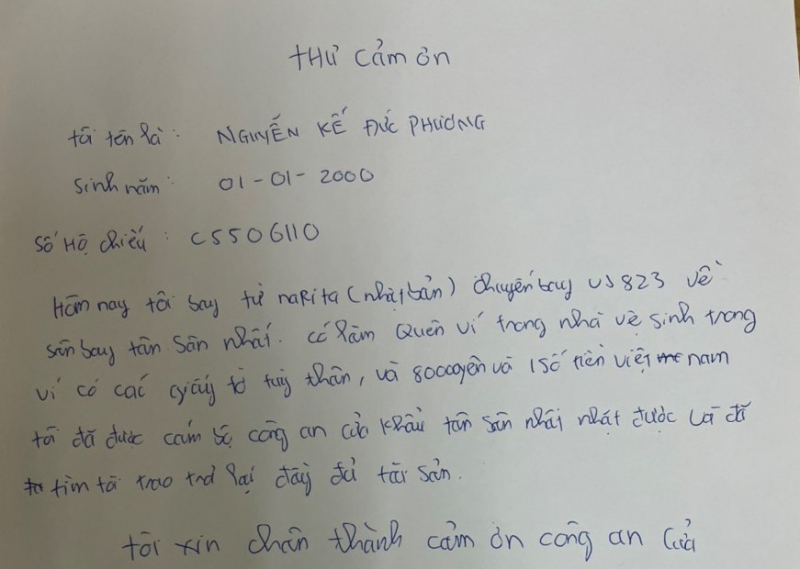 THƯ cảm ơn
tôi tên là: NGUYỄN KẾ ĐỨC PHƯƠNG
Sinh năm: 01-01-2000
Số Hộ chiếu: C5506110
Hôm nay tôi bay từ naRita (nhật bản) chuyến bay VJ823 về
sân bay tân Sân nhất. có làm Quên ví trong nhà vệ sinh trong
ví có các giấy tờ tuỳ thân, và 8000yên và 1 Số tiền việt nam
tôi đã được cán bộ công an cửa Khẩu tân Sân nhất nhặt được và đã
tìm tôi trao trả lại đầy đủ tài Sản.
tôi xin chân thành cảm ơn công an Cửa